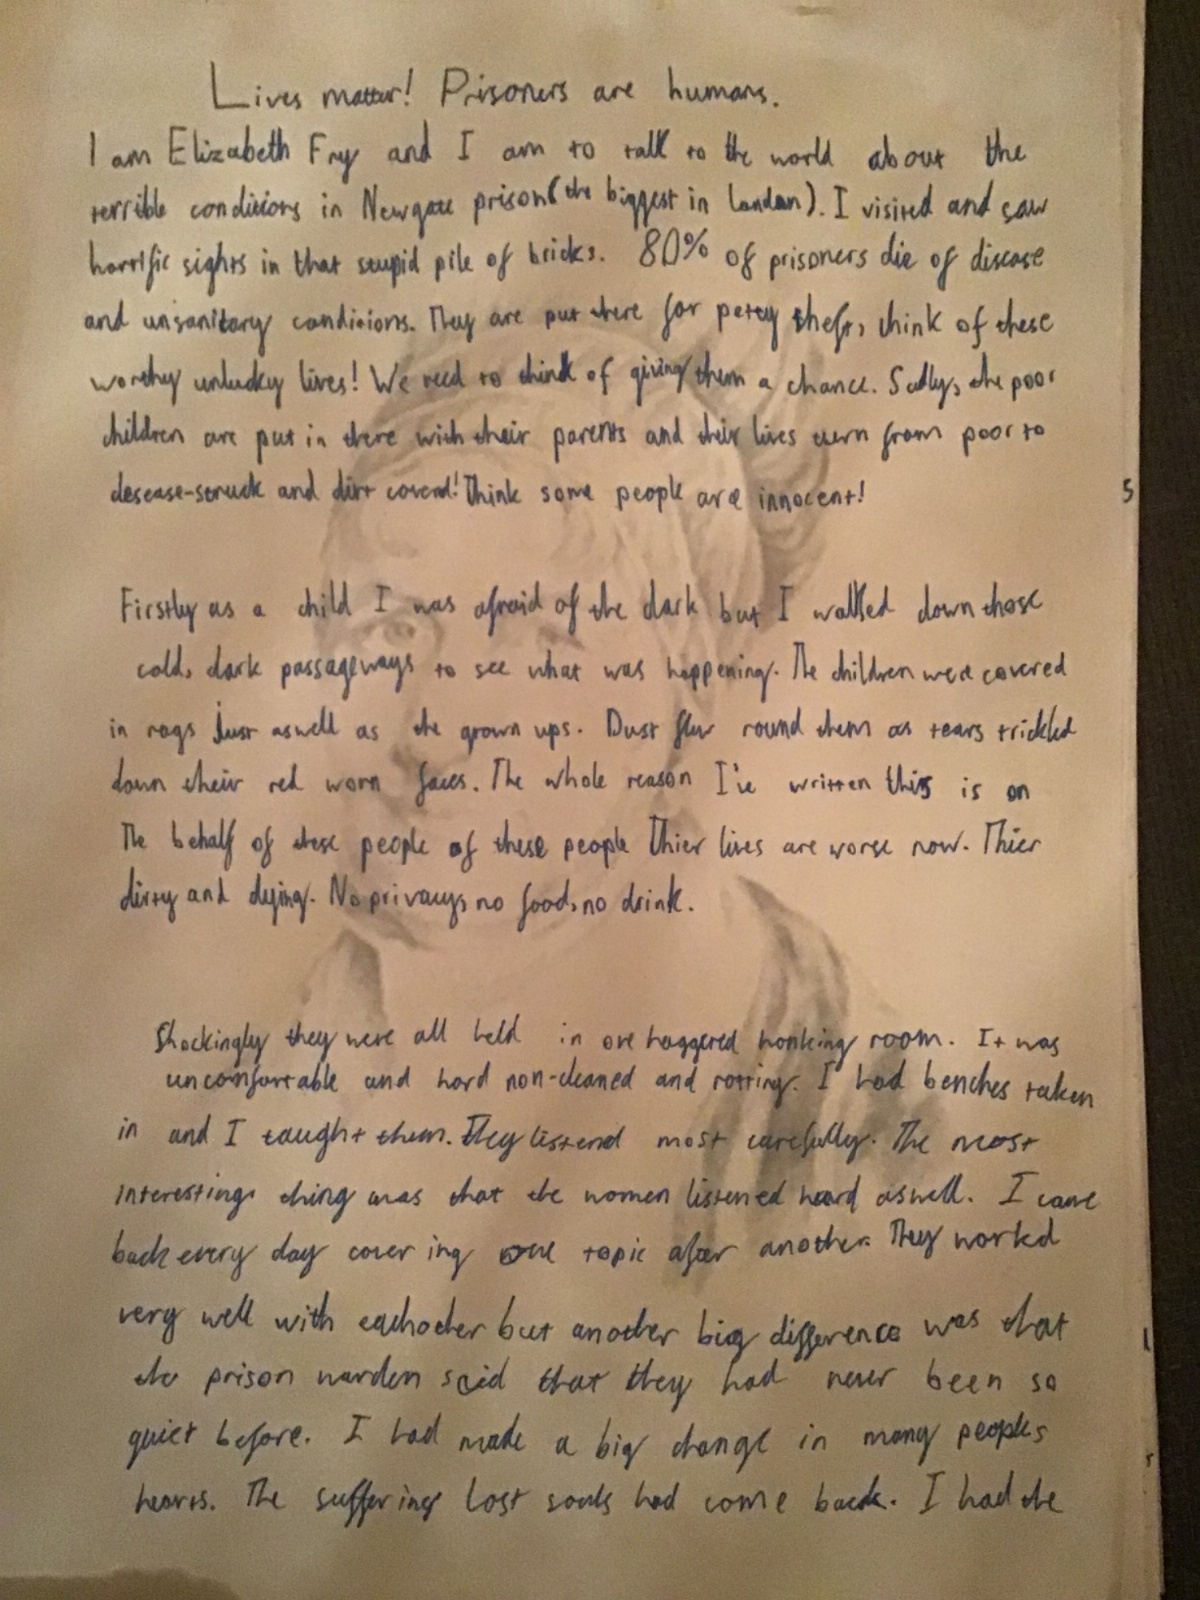 Lives matter! Prisoners are humans.
I am Elizabeth Fry and I am to talk to the world about the
terrible conditions in Newgate prison (the biggest in London). I visited and saw
horrific sights in that stupid pile of bricks. 80% of prisoners die of disease
and unsanitary conditions. They are put there for petty theft, think of these
worthy unlucky lives! We need to think of giving them a chance. Sadly, the poor
children are put in there with their parents and their lives turn from poor to
desease-struck and dirt coverd! Think some people are innocent!
5
Firstly as a child I was afraid of the dark but I walked down those
cold, dark passageways to see what was happening. The children were covered
in rags just aswell as the grown ups. Dust flew round them as tears trickled
down their red worn faces. The whole reason I've written this is on
The behalf of these people of these people Thier lives are worse now. Thier
dirty and dying. No privacy, no food, no drink.
Shockingly they were all held in one haggered honking room. It was
uncomfortable and hard non-cleaned and rotting. I had benches taken
in and I taught them. They listend most carefully. The most
interesting thing was that the women listened heard aswell. I came
back every day covering one topic after another. They workd
very well with eachother but another big difference was that
the prison warden said that they had never been so
quiet before. I had made a big change in many peoples
hearts. The suffering lost souls had come back. I had the